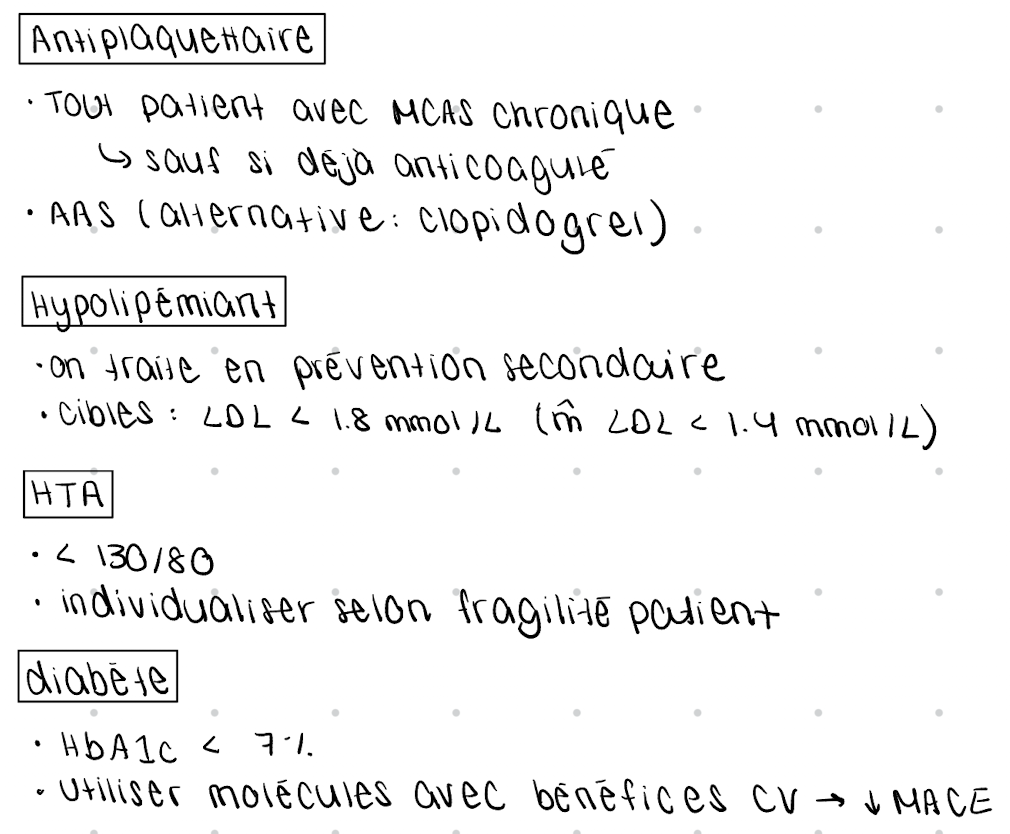 Antiplaquettaire
• Tout patient avec MCAS chronique
↳ sauf si déjà anticoagulé
• AAS (alternative: clopidogrel)
Hypolipémiant
• on traite en prévention secondaire
• cibles : LDL < 1.8 mmol/L (m̂ LDL < 1.4 mmol/L)
HTA
• < 130/80
• individualiser selon fragilité patient
diabète
• HbA1c < 7%
• Utiliser molécules avec bénéfices CV → ↓ MACE